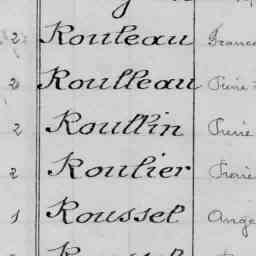 2 Rouleau
2 Roulleau Pierre
2 Roullin Pierre
2 Roulier Pierre
1 Roussel Ange